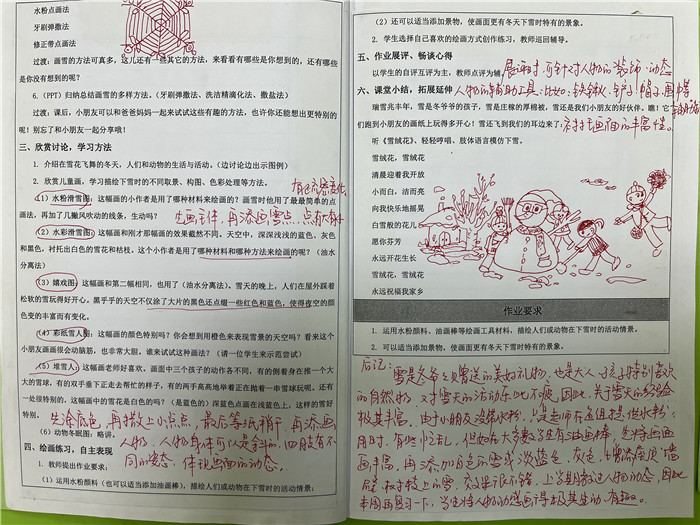 水粉点画法
牙刷弹撒法
修正带点画法
过渡：画雪的方法可真多，这儿还有一些其它的方法，来看看有哪些是你想到的，还有哪些
是你没有想到的呢？
6.（PPT）归纳总结画雪的多样方法。（牙刷弹撒法、洗洁精滴化法、撒盐法）
过渡：课后，小朋友可以和爸爸妈妈一起来试试这些有趣的方法，也许你还能想出更特别的
呢！别忘了和小朋友一起分享哦！
三、欣赏讨论，学习方法
1. 介绍在雪花飞舞的冬天，人们和动物的生活与活动。（边讨论边出示图例）
2. 欣赏儿童画，学习描绘下雪时的不同取景、构图、色彩处理等方法。
（1）水粉滑雪图：这幅画的小作者是用了哪种材料来绘画的？画雪时他用了最最简单的点
画法，再加了几撇风吹动的线条，生动吗？
先画主体，再添画雪点，点有大有小
（2）水彩滑雪图：这幅画和刚才那幅画的效果截然不同。天空中，深深浅浅的蓝色、灰色
和黑色，衬托出白色的雪花和枯枝。这个小作者是用了哪种材料和哪种方法来绘画的呢？（油水
分离法）
（3）嬉戏图：这幅画和第二幅相同，也用了（油水分离法）。雪天的晚上，人们在屋外踩着
松软的雪玩得好开心。黑乎乎的天空不仅涂了大片的黑色还点缀一些红色和蓝色，使得夜空的颜
色变的丰富而有变化。
（4）彩纸雪人图：这幅画的颜色特别吗？你会想到用橙色来表现雪景的天空吗？看来这个
小朋友画画很会动脑筋，也非常大胆。谁来试试这种画法？（请一位学生来示范尝试）
（5）堆雪人：这幅画老师好喜欢。画面中三个孩子的动作各不同，有的侧着身在推一个大
大的雪球，有的双手垂下正走去帮忙的样子，有的两手高高地举着正在抛着一串雪球玩呢。还有
一处很特别的，这幅画中的雪花是白色的吗？（是蓝色的）深蓝色点画在浅蓝色上，这样的雪好
特别。
先涂底色，再撒上小点点，最后等纸稍干，再添画
（6）动物冬眠图：略讲。
人物，人物身体可以是斜的，四肢有不
同的姿态，体现画面的动态。
四、绘画练习，自主表现
1. 教师提出作业要求：
（1）运用水粉颜料（也可以适当添加油画棒），描绘人们或动物在下雪时的活动情景；
（2）还可以适当添加景物，使画面更有冬天下雪时特有的景象。
2. 学生选择自己喜欢的绘画方式创作练习，教师巡回辅导。
五、作业展评、畅谈心得
以学生的自评互评为主，教师点评为辅。
展评时，可针对人物的装饰、动态
六、课堂小结，拓展延伸
人物的辅助工具：比如：铁锹、铲子、帽子、围巾等
瑞雪兆丰年，雪是冬爷爷的孩子，雪是庄稼的厚棉被，雪还是我们小朋友的好伙伴。瞧！它
们跑到小朋友的画纸上玩得多开心！雪还飞到我们的耳边来了。
听《雪绒花》、轻轻哼唱、肢体语言模仿下雪。
雪绒花，雪绒花
清晨迎着我开放
小而白，洁而亮
向我快乐地摇晃
白雪般的花儿
愿你芬芳
永远开花生长
雪绒花，雪绒花
永远祝福我家乡
作业要求
1. 运用水粉颜料、油画棒等绘画工具材料，描绘人们或动物在下雪时的活动情景。
2. 可以适当添加景物，使画面更有冬天下雪时特有的景象。
后记：
雪是冬爷爷赠送的美好礼物，也是大人、孩子特别喜欢
的自然物，对于雪天的活动乐此不疲，因此，关于雪天的经验
极其丰富，